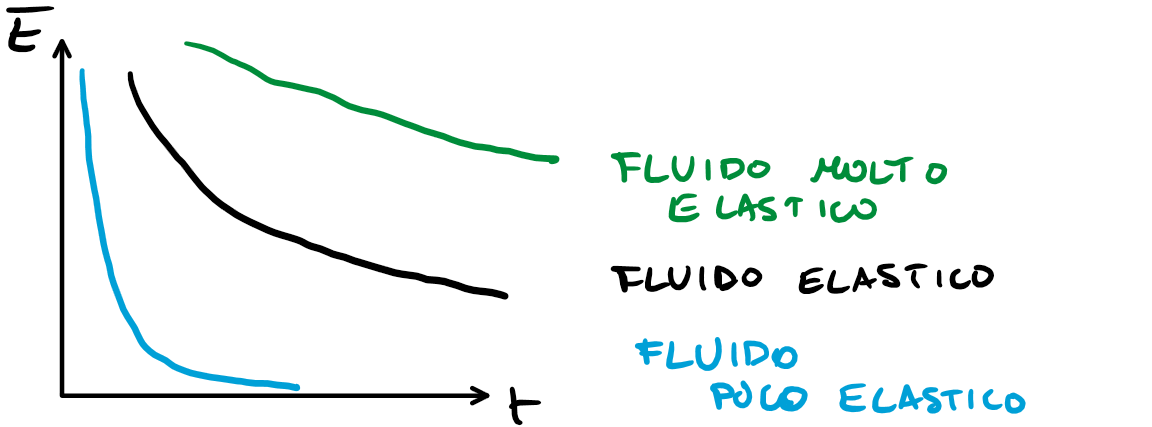 E
t
FLUIDO MOLTO
ELASTICO
FLUIDO ELASTICO
FLUIDO
POCO ELASTICO